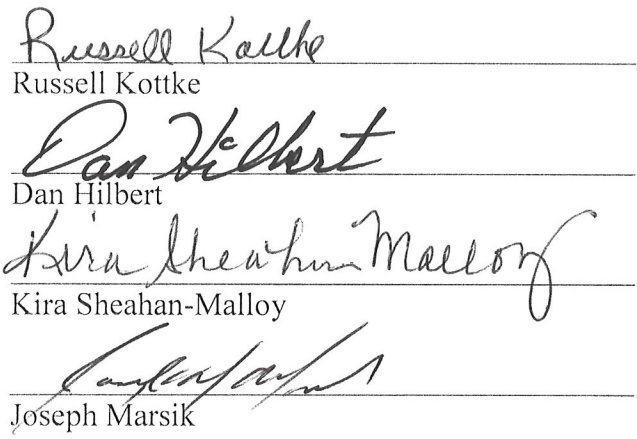 Russell Kottke
Russell Kottke
Dan Hilbert
Dan Hilbert
Kira Sheahan Malloy
Kira Sheahan-Malloy
Joseph Marsik